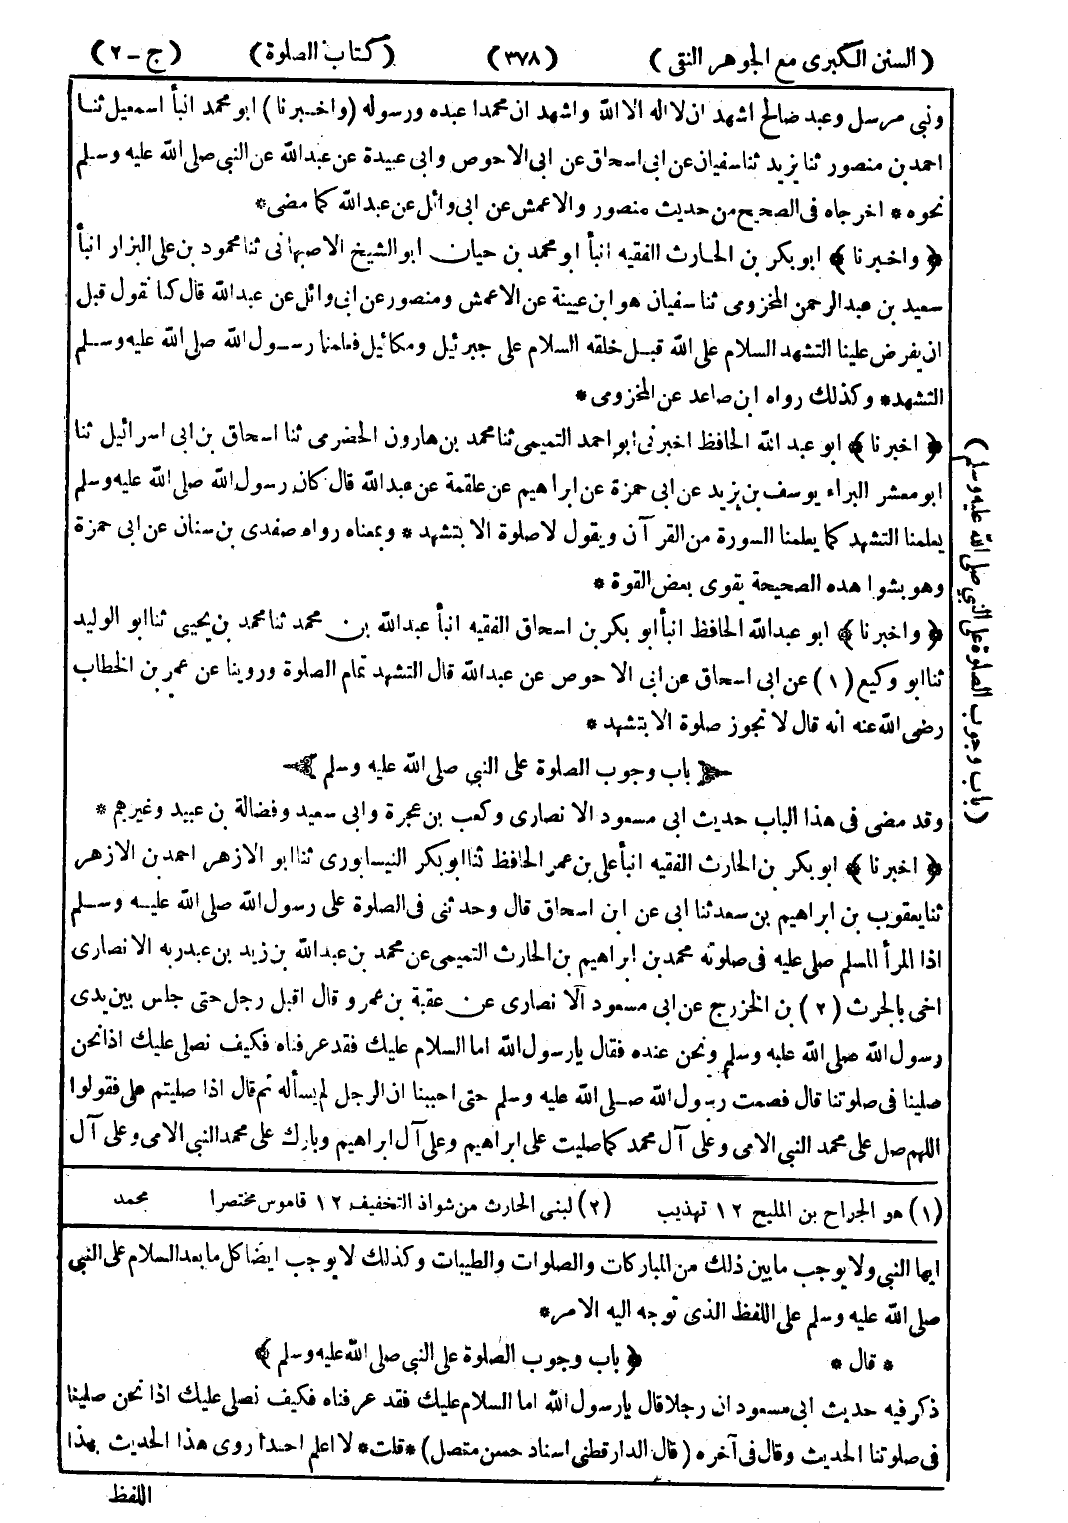 (السنن الكبرى مع الجوهر النقى) (٣٧٨) (كتاب الصلوة) (ج-٢)
ونبي مرسل وعبد صالح اشهد ان لا اله الا الله واشهد ان محمدا عبده ورسوله (واخبرنا) ابو محمد انبأ اسمعيل ثنا
احمد بن منصور ثنا يزيد ثنا سفيان عن ابى اسحاق عن ابى الاحوص وابى عبيدة عن عبدالله عن النبي صلى الله عليه وسلم
نحوه * اخرجاه فى الصحيح من حديث منصور والاعمش عن ابى وائل عن عبدالله كما مضى*
﴿ واخبرنا ﴾ ابوبكر بن الحارث الفقيه انبأ ابو محمد بن حيان ابو الشيخ الاصبهانى ثنا محمود بن على البزار انبأ
سعيد بن عبدالرحمن المخزومى ثنا سفيان هو ابن عيينة عن الاعمش ومنصور عن ابى وائل عن عبدالله قال كنا نقول قبل
ان يفرض علينا التشهد السلام على الله قبل خلقه السلام على جبرئيل ومكائيل فعلمنا رسول الله صلى الله عليه وسلم
التشهد* وكذلك رواه ابن صاعد عن المخزومى*
﴿ اخبرنا ﴾ ابو عبد الله الحافظ اخبرنى ابو احمد التميمى ثنا محمد بن هارون الحضرمى ثنا اسحاق بن ابى اسرائيل ثنا
ابو معشر البراء يوسف بن يزيد عن ابى حمزة عن ابراهيم عن علقمة عن عبدالله قال كان رسول الله صلى الله عليه وسلم
يعلمنا التشهد كما يعلمنا السورة من القرآن ويقول لا صلوة الا بتشهد * وبمعناه رواه صغدى بن سنان عن ابى حمزة
وهو بشواهده الصحيحة يقوى بعض القوة *
﴿ واخبرنا ﴾ ابو عبدالله الحافظ انبأ ابو بكر بن اسحاق الفقيه انبأ عبدالله بن محمد ثنا محمد بن يحيى ثنا ابو الوليد
ثنا ابو وكيع (١) عن ابى اسحاق عن ابى الاحوص عن عبدالله قال التشهد تمام الصلوة وروينا عن عمر بن الخطاب
رضى الله عنه انه قال لا تجوز صلوة الا بتشهد *
باب وجوب الصلوة على النبي صلى الله عليه وسلم
وقد مضى فى هذا الباب حديث ابى مسعود الانصارى وكعب بن عجرة وابى سعيد وفضالة بن عبيد وغيرهم *
﴿ اخبرنا ﴾ ابوبكر بن الحارث الفقيه انبأ على بن عمر الحافظ ثنا ابوبكر النيسابورى ثنا ابو الازهر احمد بن الازهر
ثنا يعقوب بن ابراهيم بن سعد ثنا ابى عن ابن اسحاق قال وحدثنى فى الصلوة على رسول الله صلى الله عليه وسلم
اذا المرأ المسلم صلى عليه فى صلوته محمد بن ابراهيم بن الحارث التيمى عن محمد بن عبدالله بن زيد بن عبدربه الانصارى
اخى بالحرث (٢) بن الخزرج عن ابى مسعود الانصارى عن عقبة بن عمرو قال اقبل رجل حتى جلس بين يدى
رسول الله صلى الله عليه وسلم ونحن عنده فقال يارسول الله اما السلام عليك فقد عرفناه فكيف نصلى عليك اذا نحن
صلينا فى صلوتنا قال فصمت رسول الله صلى الله عليه وسلم حتى احببنا ان الرجل لم يسأله ثم قال اذا صليتم على فقولوا
اللهم صل على محمد النبي الامى وعلى آل محمد كما صليت على ابراهيم وعلى آل ابراهيم وبارك على محمد النبي الامى وعلى آل
محمد
(١) هو الجراح بن المليح ١٢ تهذيب (٢) لبنى الحارث من شواذ التخفيف ١٢ قاموس مختصرا
ايها النبي ولا يوجب ما بين ذلك من المباركات والصلوات والطيبات وكذلك لا يوجب ايضا كل ما بعد السلام على النبي
صلى الله عليه وسلم على اللفظ الذى توجه اليه الامر*
* قال * ﴿ باب وجوب الصلوة على النبي صلى الله عليه وسلم ﴾
ذكر فيه حديث ابى مسعود ان رجلا قال يارسول الله اما السلام عليك فقد عرفناه فكيف نصلى عليك اذا نحن صلينا
فى صلوتنا الحديث وقال فى آخره (قال الدارقطنى اسناد حسن متصل) *قلت* لا اعلم احدا روى هذا الحديث بهذا
اللفظ
(باب وجوب الصلوة على النبي صلى الله عليه وسلم)